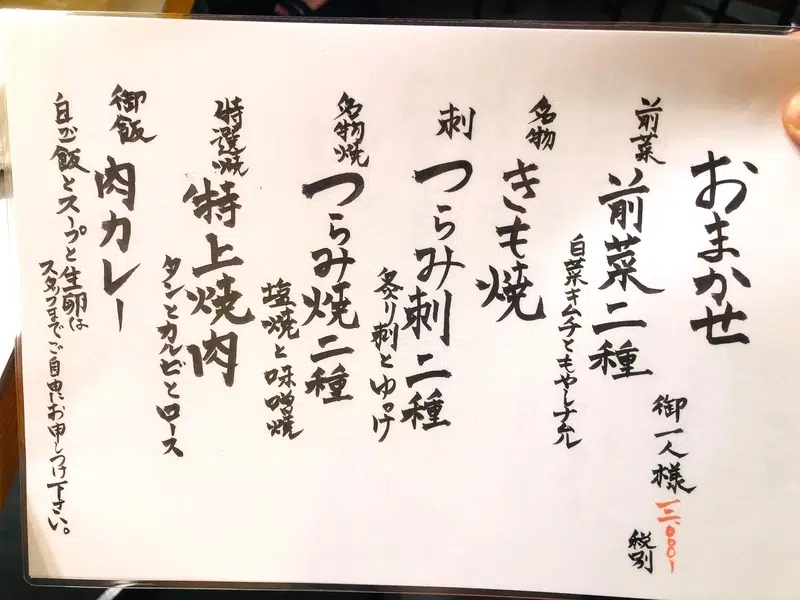 おまかせ
御一人様
税別
前菜
前菜二種
白菜キムチともやしナムル
名物
きも焼
刺
つらみ刺二種
炙り刺とゆっけ
名物焼
つらみ焼二種
塩焼と味噌焼
特選焼
特上焼肉
タンとカルビとロース
御飯
肉カレー
白ご飯とスープと生卵は
スタッフまでご自由にお申しつけ下さい。